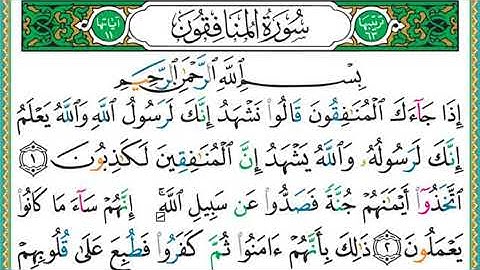 ترتيبها ٦٣ سُورَةُ الْمُنَافِقُونَ آياتها ١١
بِسْمِ اللَّهِ الرَّحْمَٰنِ الرَّحِيمِ
إِذَا جَآءَكَ الْمُنَافِقُونَ قَالُوا نَشْهَدُ إِنَّكَ لَرَسُولُ اللَّهِ وَاللَّهُ يَعْلَمُ
إِنَّكَ لَرَسُولُهُ وَاللَّهُ يَشْهَدُ إِنَّ الْمُنَافِقِينَ لَكَاذِبُونَ ١
اتَّخَذُوٓا أَيْمَانَهُمْ جُنَّةً فَصَدُّوا عَن سَبِيلِ اللَّهِ ۚ إِنَّهُمْ سَآءَ مَا كَانُوا
يَعْمَلُونَ ٢ ذَٰلِكَ بِأَنَّهُمْ ءَامَنُوا ثُمَّ كَفَرُوا فَطُبِعَ عَلَىٰ قُلُوبِهِمْ